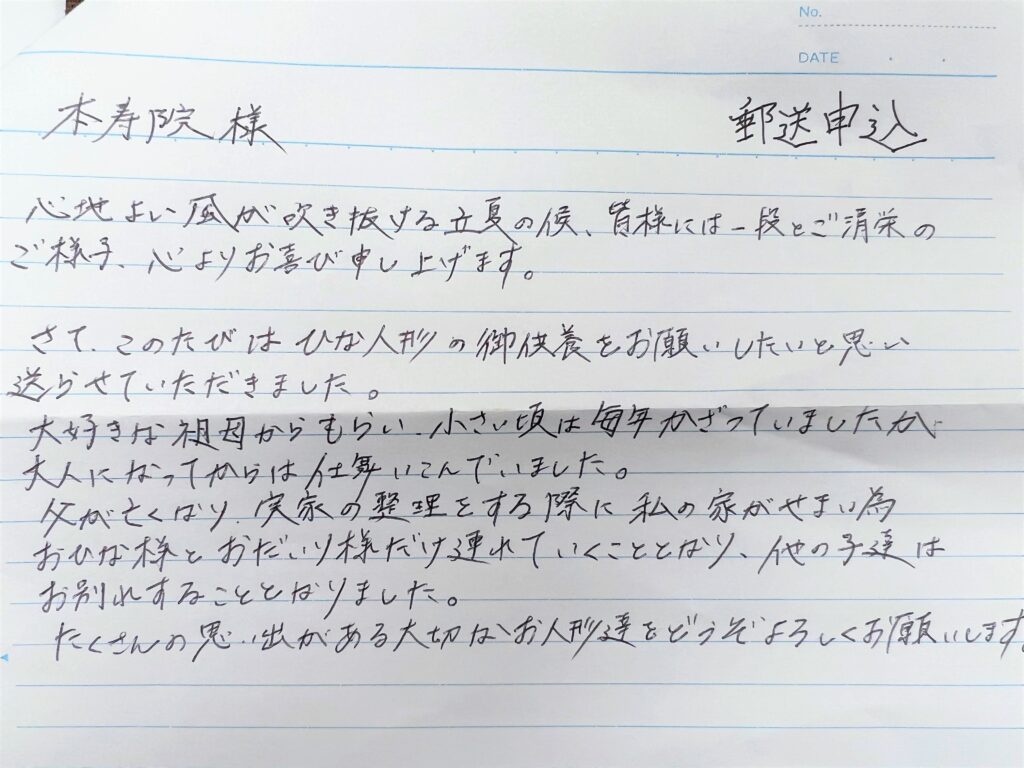 No.
DATE
本寿院様 郵送申込
心地よい風が吹き抜ける立夏の候、皆様には一段とご清栄の
ご様子、心よりお喜び申し上げます。
さて、このたびはひな人形の御供養をお願いしたいと思い
送らせていただきました。
大好きな祖母からもらい、小さい頃は毎年かざっていましたが
大人になってからは仕舞いこんでいました。
父が亡くなり、実家の整理をする際に私の家がせまい為
おひな様とおだいり様だけ連れていくこととなり、他の子達は
お別れすることとなりました。
たくさんの思い出がある大切なお人形達をどうぞよろしくお願いします。